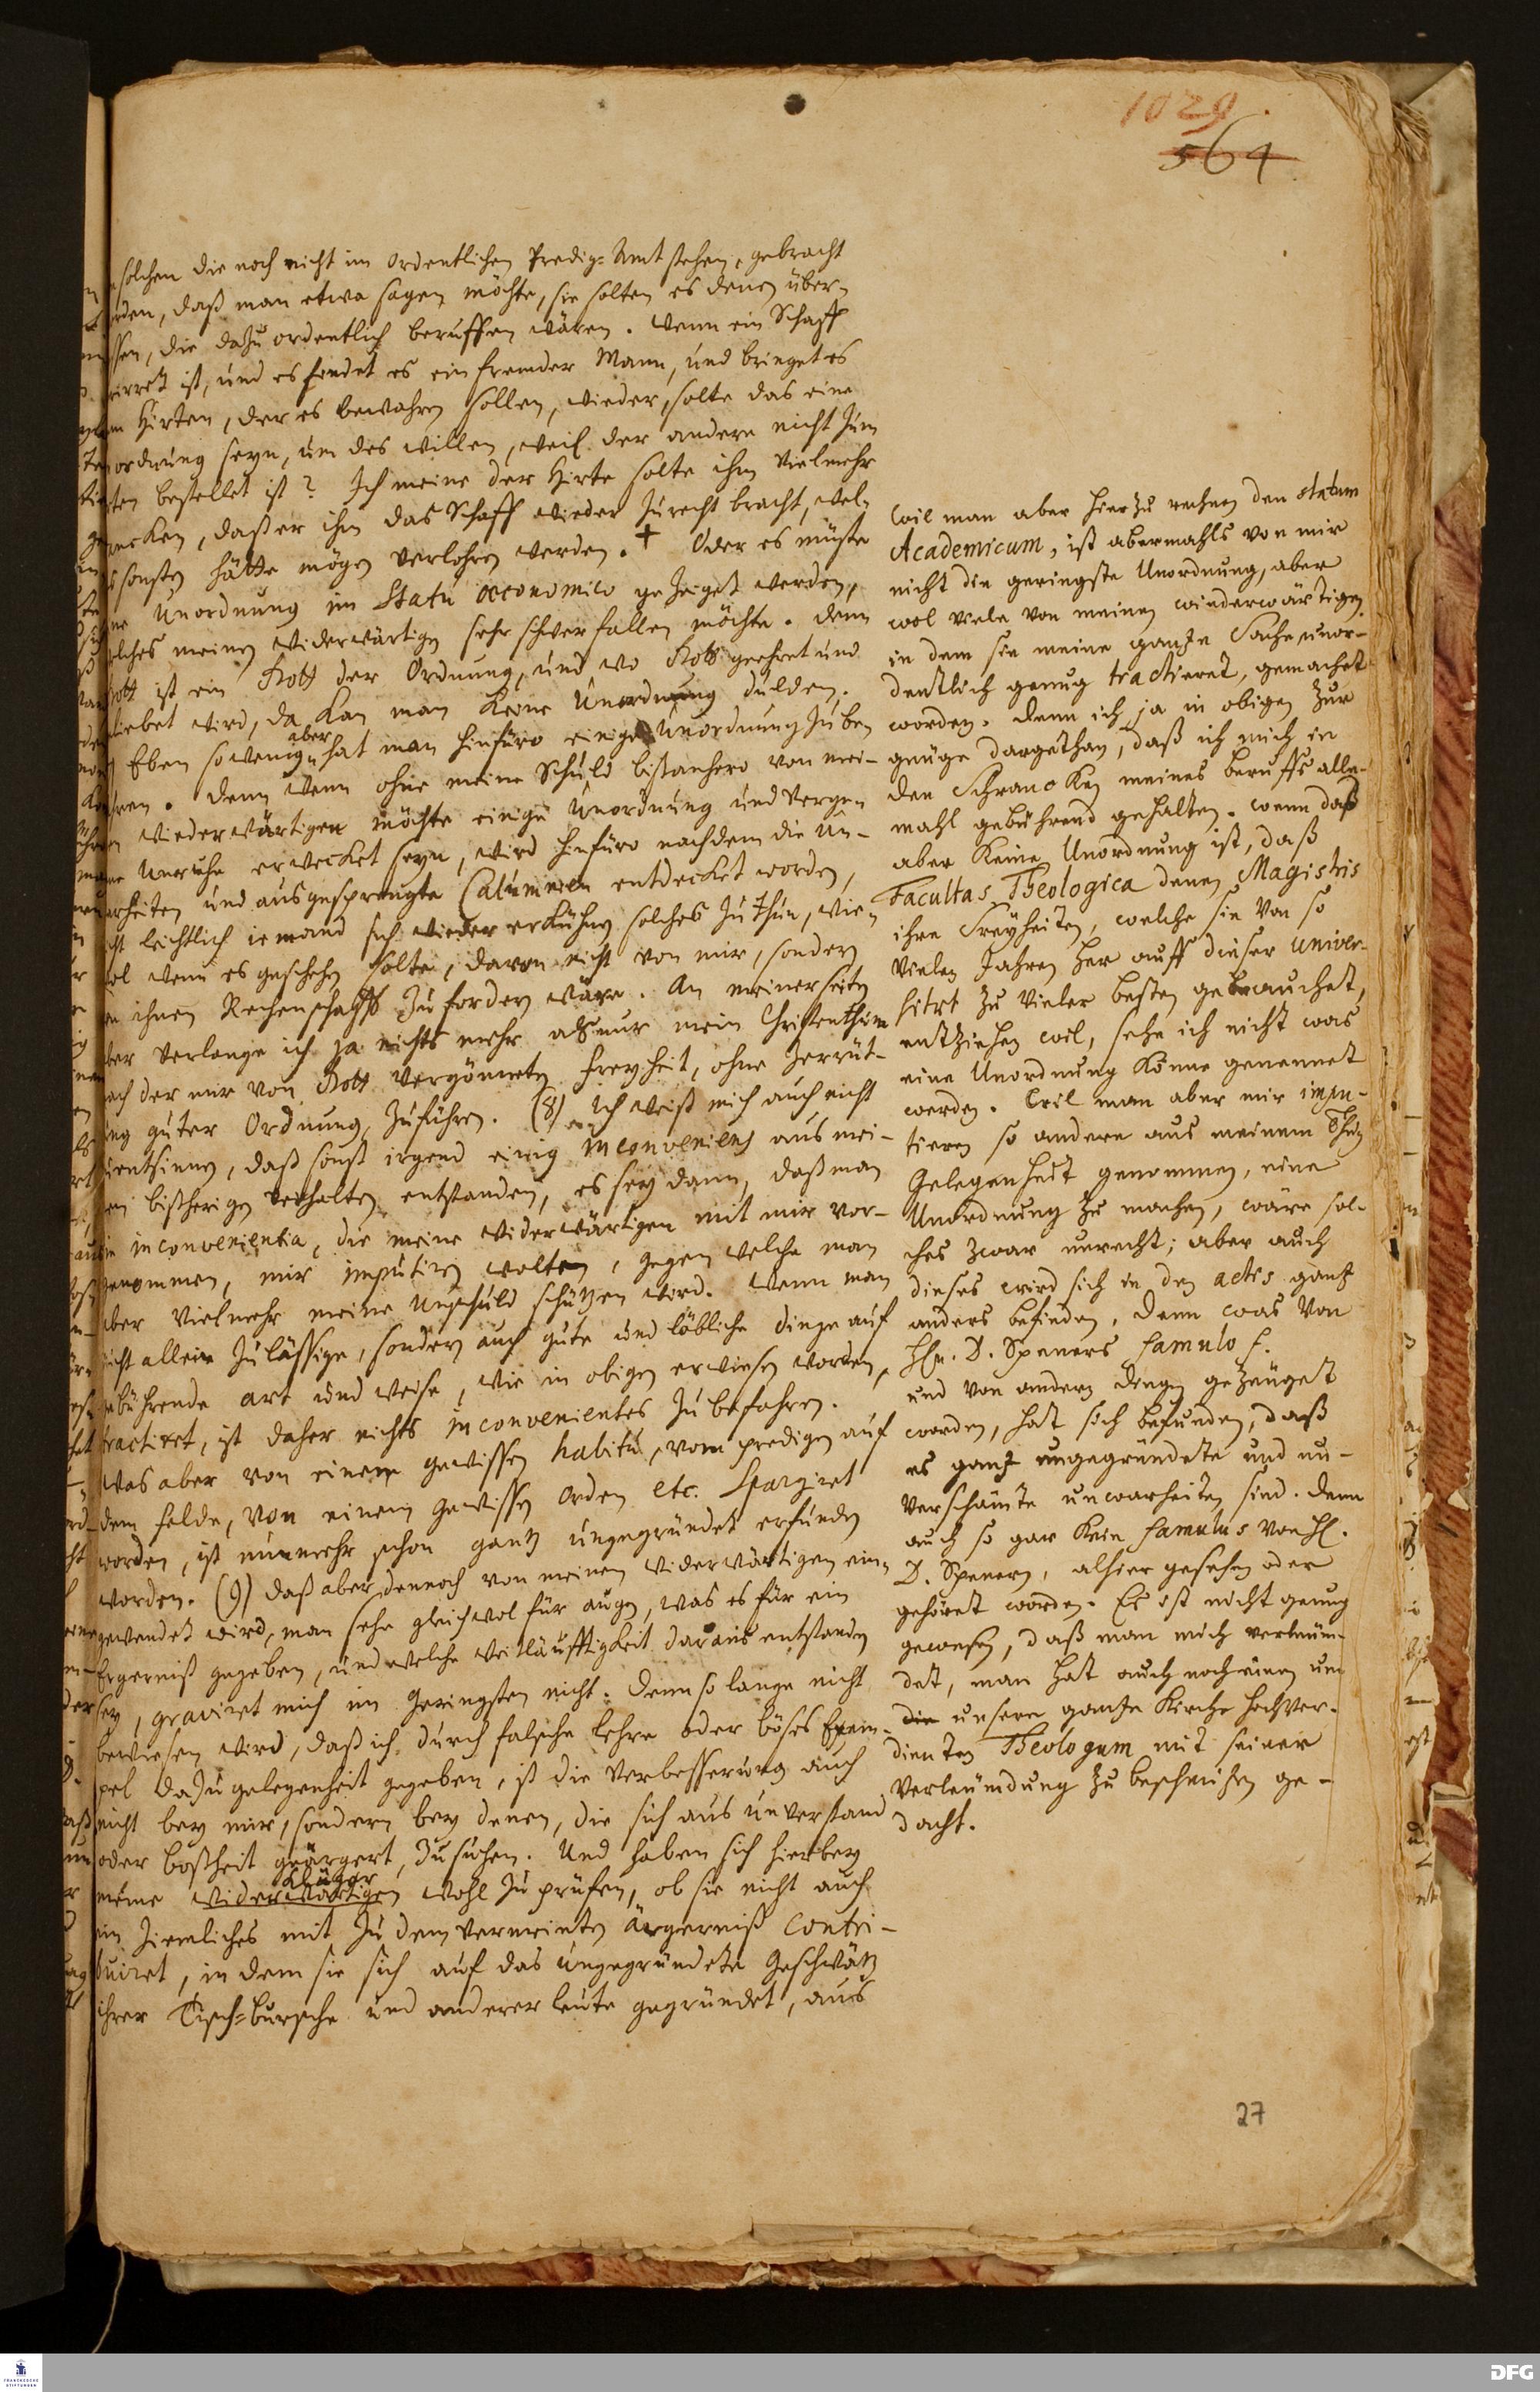 1029.
564
solchen die noch nicht im Ordentlichen Predig-Amt stehen, gebracht
rden, daß man etwa sagen möchte, sie solten es denen über-
ssen, die dazu ordentlich beruffen wären. Wenn ein Schaff
irret ist, und es findet es ein fremder Mann, und bringet es
em Hirten, der es bewahren sollen, wieder, solte das eine
ordnung seyn, um des willen, weil der andere nicht zum
ten bestellet ist? Ich meine der Hirte solte ihm vielmehr
ncken, daß er ihm das Schaff wieder zu recht bracht, wel-
s sonsten hätte mögen verlohren werden. + Oder es müste
ne Unordnung im Statu oeconomico gezeiget werden,
lches meinen widerwärtigen sehr schwer fallen möchte. denn
Gott ist ein Gott der Ordnung, und wo Gott geehret und
liebet wird, da kan man keine Unordnung dulden.
aber
Eben so wenig hat man hinfüro einige Unordnung zu be
ren. denn wenn ohne meine Schuld bißanhero von mei-
n wiederwärtigen möchte einige Unordnung und Verge-
ne Unruhe erwecket seyn, wird hinfüro nachdem die Un-
arheiten und ausgesprengte Calumnien entdecket worden,
cht leichtlich iemand sich wieder erkühnen solches zu thun, wie-
ol wenn es geschehen solte, davon nicht von mir, sondern
n ihnen Rechenschafft zu fordern wäre. An meiner seiten
ber verlange ich ja nichts mehr als nur mein Christenthum
ach der mir von Gott vergönneten Freyheit, ohne zerrüt-
ng guter Ordnung, zu führen. (8) Ich weiß mich auch nicht
zu entsinnen, daß sonst irgend einig inconveniens aus mei-
em bißherigen verhalten entstanden, es sey dann, daß man
ie inconvenientia, die meine widerwärtigen mit mir vor-
genommen, mir imputiren wolten, gegen welche man
aber vielmehr meine Unschuld schützen wird. Wenn man
nicht allein zuläßige, sondern auch gute und löbliche dinge auf
gebührende art und weise, wie in obigen erwiesen worden,
tractiret, ist daher nichts inconvenientes zu befahren.
Was aber von einem gewissen habitu, vom predigen auf
dem felde, von einem gewissen Orden etc. spargiret
worden, ist nunmehr schon gantz ungegründet erfunden
worden. (9) daß aber dennoch von meinen widerwärtigen ein-
gewendet wird, man sehe gleichwol für augen, was es für ein
Ergerniß gegeben, und welche Weitläufftigkeit daraus entstanden
sey, graviret mich im geringsten nicht. Denn so lange nicht
bewiesen wird, daß ich durch falsche lehre oder böses Exem-
pel dazu gelegenheit gegeben, ist die Verbesserung auch
nicht bey mir, sondern bey denen, die sich aus unverstand
oder boßheit geärgert, zu suchen. Und haben sich hierbey
Kläger
meine widerwärtigen wohl zu prüfen, ob sie nicht auch
ein ziemliches mit zu dem vermeinten ärgerniß contri-
buiret, in dem sie sich auf das ungegründete Geschwätz
ihrer Tisch-bursche und anderer leute gegründet, aus
Weil man aber hierzu rechnen den statum
Academicum, ist abermahls von mir
nicht die geringste Unordnung, aber
wol viele von meinen wiederwärtigen
in dem sie meine gantze Sache unor-
dentlich genug tractieret, gemachet
worden. Denn ich ja in obigen zur
gnüge dargethan, daß ich mich in
den Schrancken meines beruffs alle-
mahl gebührend gehalten. wenn daß
aber keine Unordnung ist, daß
Facultas Theologica denen Magistris
ihre Freyheiten, welche sie von so
vielen Jahren her auff dieser univer-
sitet zu vieler besten gebrauchet,
entziehen wil, sehe ich nicht was
eine Unordnung könne genennet
werden. Weil man aber mir impu-
tieren so andere aus meinem
Gelegenheit genommen, eine
Unordnung zu machen, wäre sol-
ches zwar unrecht; aber auch
dieses wird sich in den actis gantz
anders befinden. Denn was von
Hln. D. Speners famulo f.
und von andern dingen gezeuget
worden, hat sich befunden, daß
es gantz ungegründete und un-
verschämte unwarheiten sind. Denn
auch so gar kein famulus von Hl.
D. Spenern, alhier gesehen oder
gehöret worden. Es ist nicht genung
gewesen, daß man mich verleum-
det, man hat auch noch einen um
die unsere gantze Kirche hochver-
dienten Theologum mit seiner
Verleumdung zu beschmitzen ge-
dacht.
27
FRANCKESCHE STIFTUNGEN
DFG